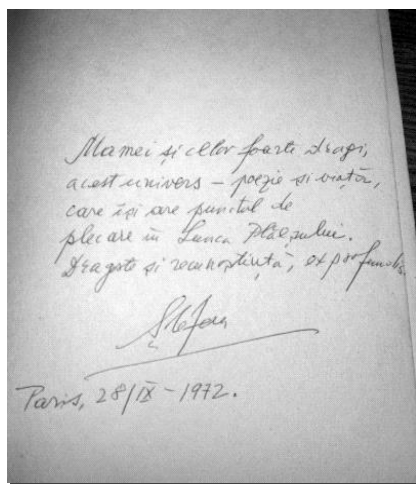 Mamei și celor foarte dragi,
acest univers – poezie și viață,
care își are punctul de
plecare în Lunca Plăeșului.
Dragoste și recunoștință, ex profundis
Ștefan
Paris, 28/IX – 1972.